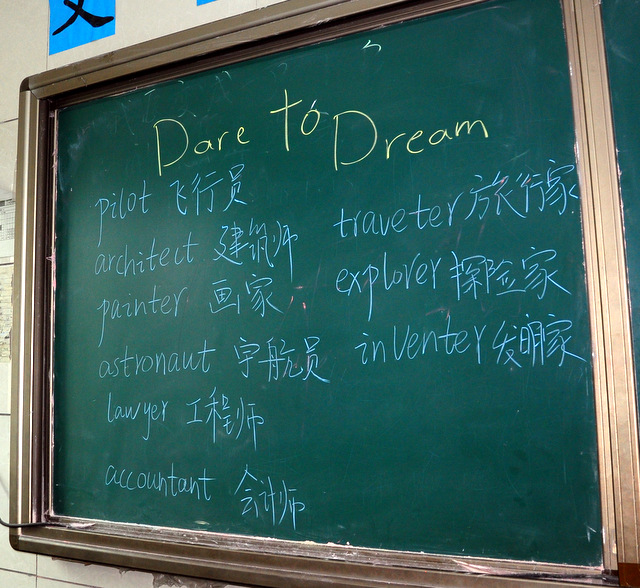 Dare to Dream
pilot 飞行员
architect 建筑师
painter 画家
astronaut 宇航员
lawyer 工程师
accountant 会计师
traveter 旅行家
explorer 探险家
inventer 发明家